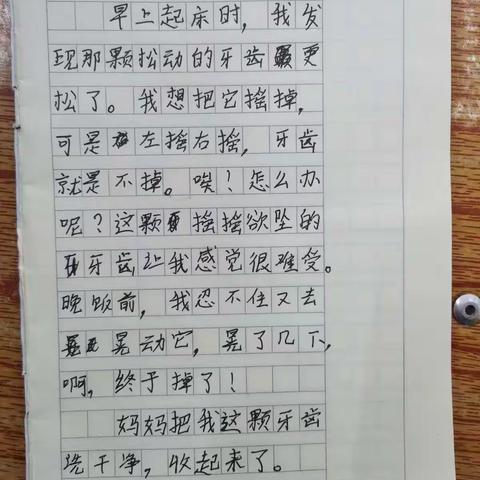 早上起床时，我发
现那颗松动的牙齿更
松了。我想把它摇掉，
可是左摇右摇，牙齿
就是不掉。唉！怎么办
呢？这颗摇摇欲坠的
牙齿让我感觉很难受。
晚饭前，我忍不住又去
晃动它，晃了几下，
啊，终于掉了！
妈妈把我这颗牙齿
洗干净，收起来了。